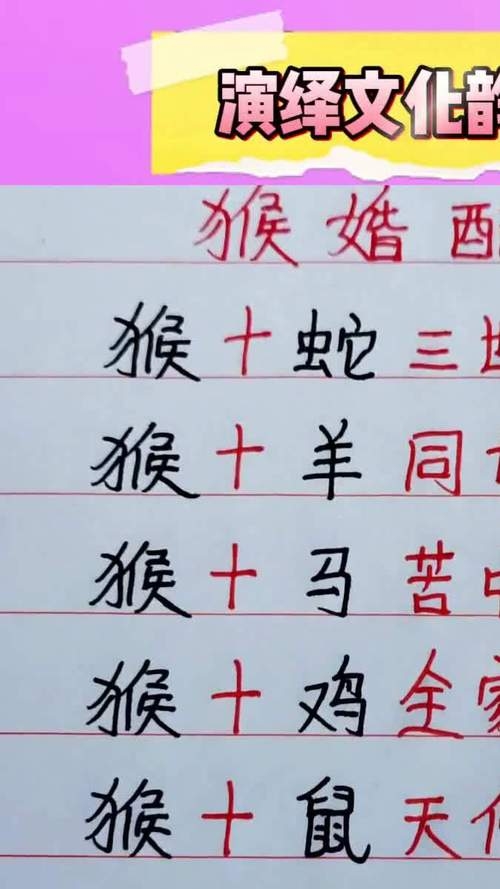 演绎文化韵
猴婚配
猴+蛇 三世
猴+羊 同
猴+马 苦中
猴+鸡 全家
猴+鼠 天作